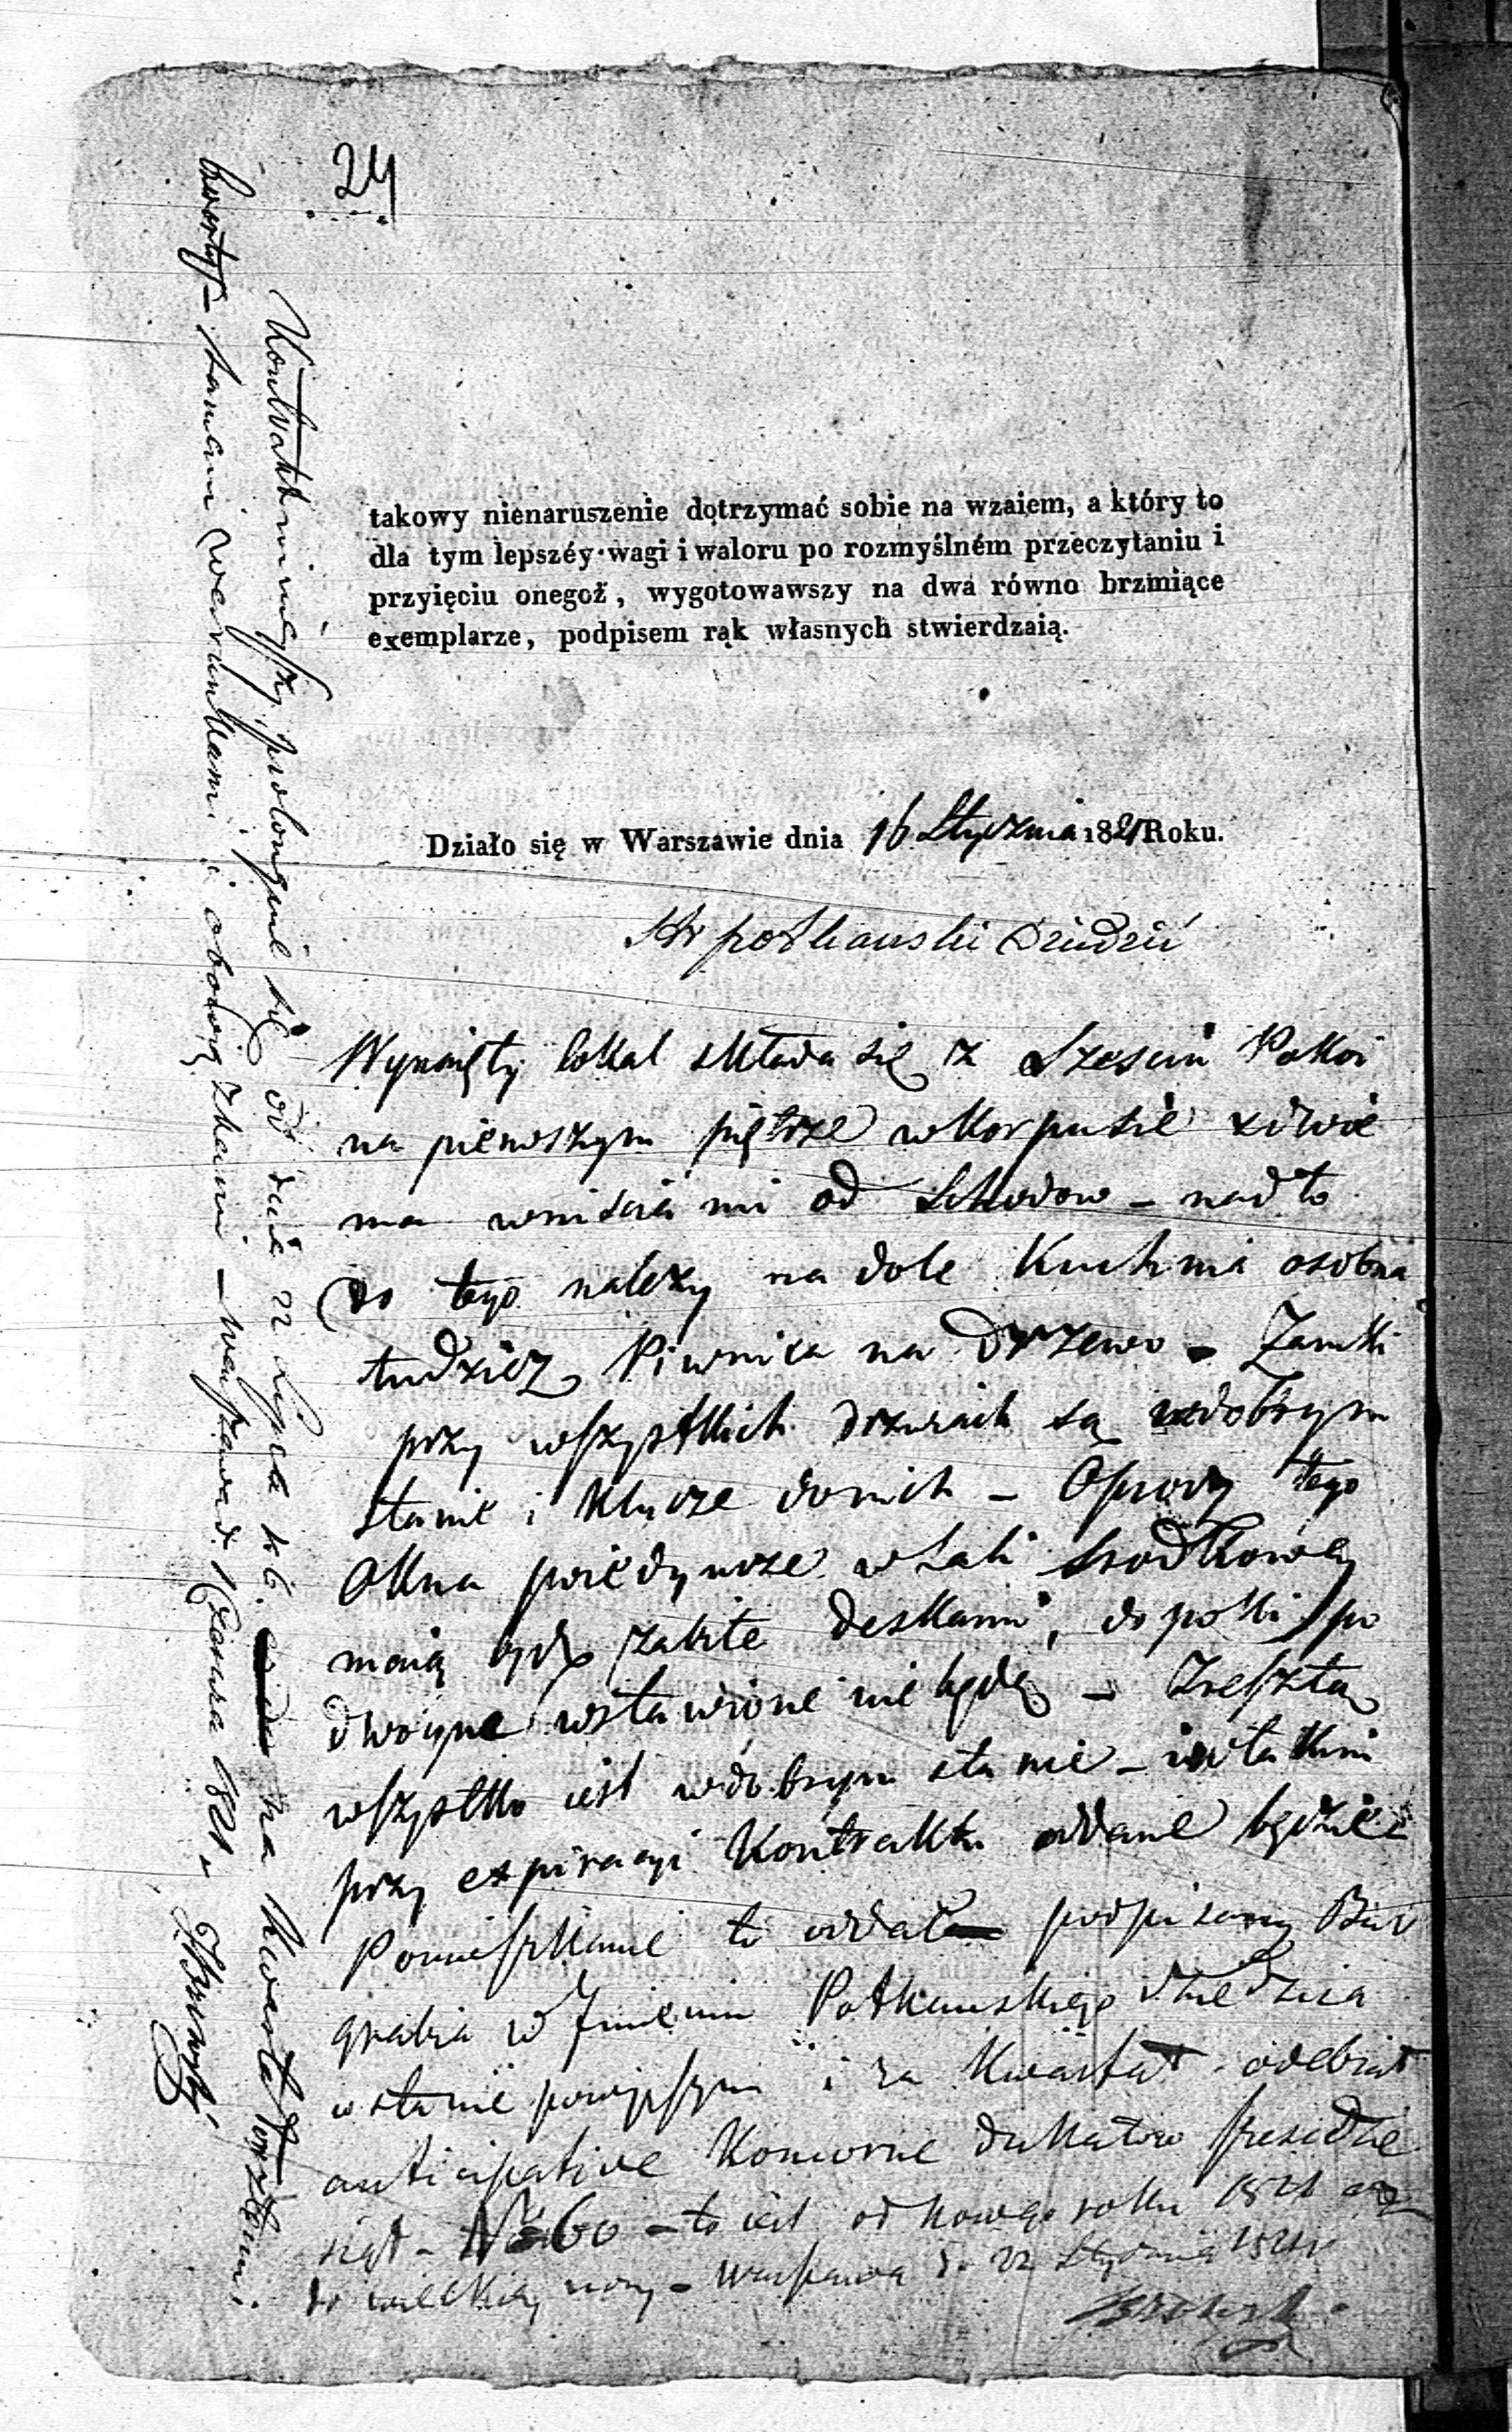 24
takowy nienaruszenie dotrzymać sobie na wzaiem, a który to
dla tym lepszéy wagi i waloru po rozmyślném przeczytaniu i
przyięciu onegoż, wygotowawszy na dwa równo brzmiące
exemplarze, podpisem rąk własnych stwierdzaią.
Działo się w Warszawie dnia 16 Stycznia 1821 Roku.
potkanski Dziedzic
Wynaięty lokal składa się z Szesciu Pokoi
na pierwszym piętrze w Korpusie z dwie
ma wniściami od Schodow – nadto
do tego należy na dole Kuchnia osobna
tudzież Piwnica na Drzewo – Zamki
przy wszystkich drzwiach są w dobrym
stanie i Klucze do nich – Oprocz tego
Okna poiedyncze w Sali srodkowey
maią bydz zabite deskami, dopoki po
dwoyne wstawione nie będą – Zresztą
wszystko iest w dobrym stanie – i w takim
przy expiracyi Kontraktu oddane będzie
Pomieszkanie to oddał podpisany Bur
grabia w Imieniu Potkanskiego Dziedzica
w stanie powyższym i za Kwartał odebrał
anticipative Komorne dukatow sześćdzie
siąt – No 60 – to iest od nowego roku 1821
do wielkiey nocy – Warszawa d. 22 Stycznia 1821
Kontrakt ninieyszy prolonguie się od dnia 22 Lipca r. b. na Kwartał
temi
samemi warunkami i obowiązkami – Warszawa d. 1 Czerwca 1821